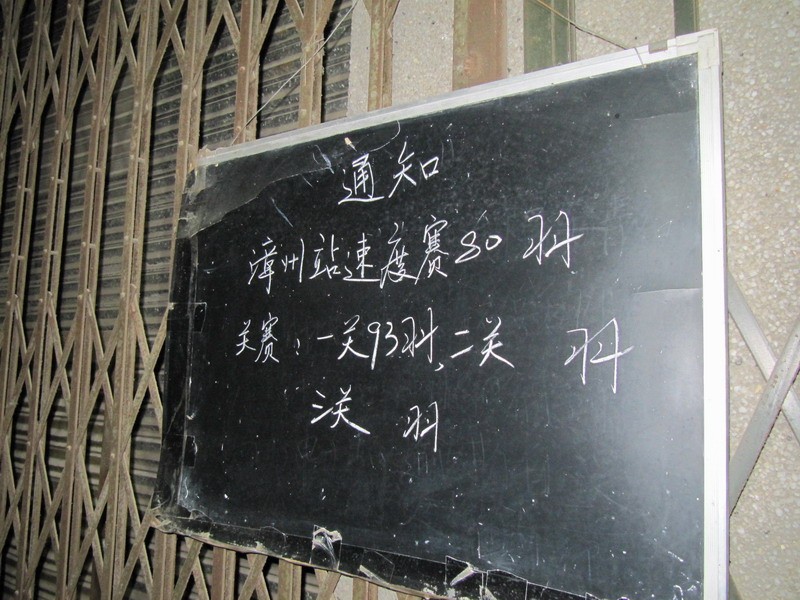 通知
漳州站速度赛80羽
关赛：一关93羽、二关 羽
三关 羽